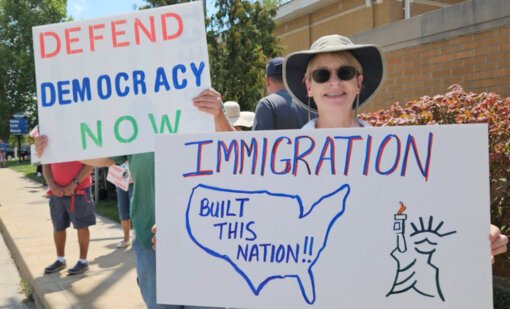 DEFEND
DEMOCRACY
NOW
IMMIGRATION
BUILT
THIS
NATION!!